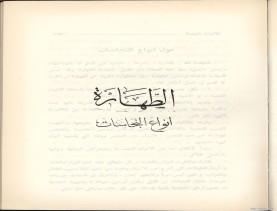 الطهارة
انواع النجاسات: